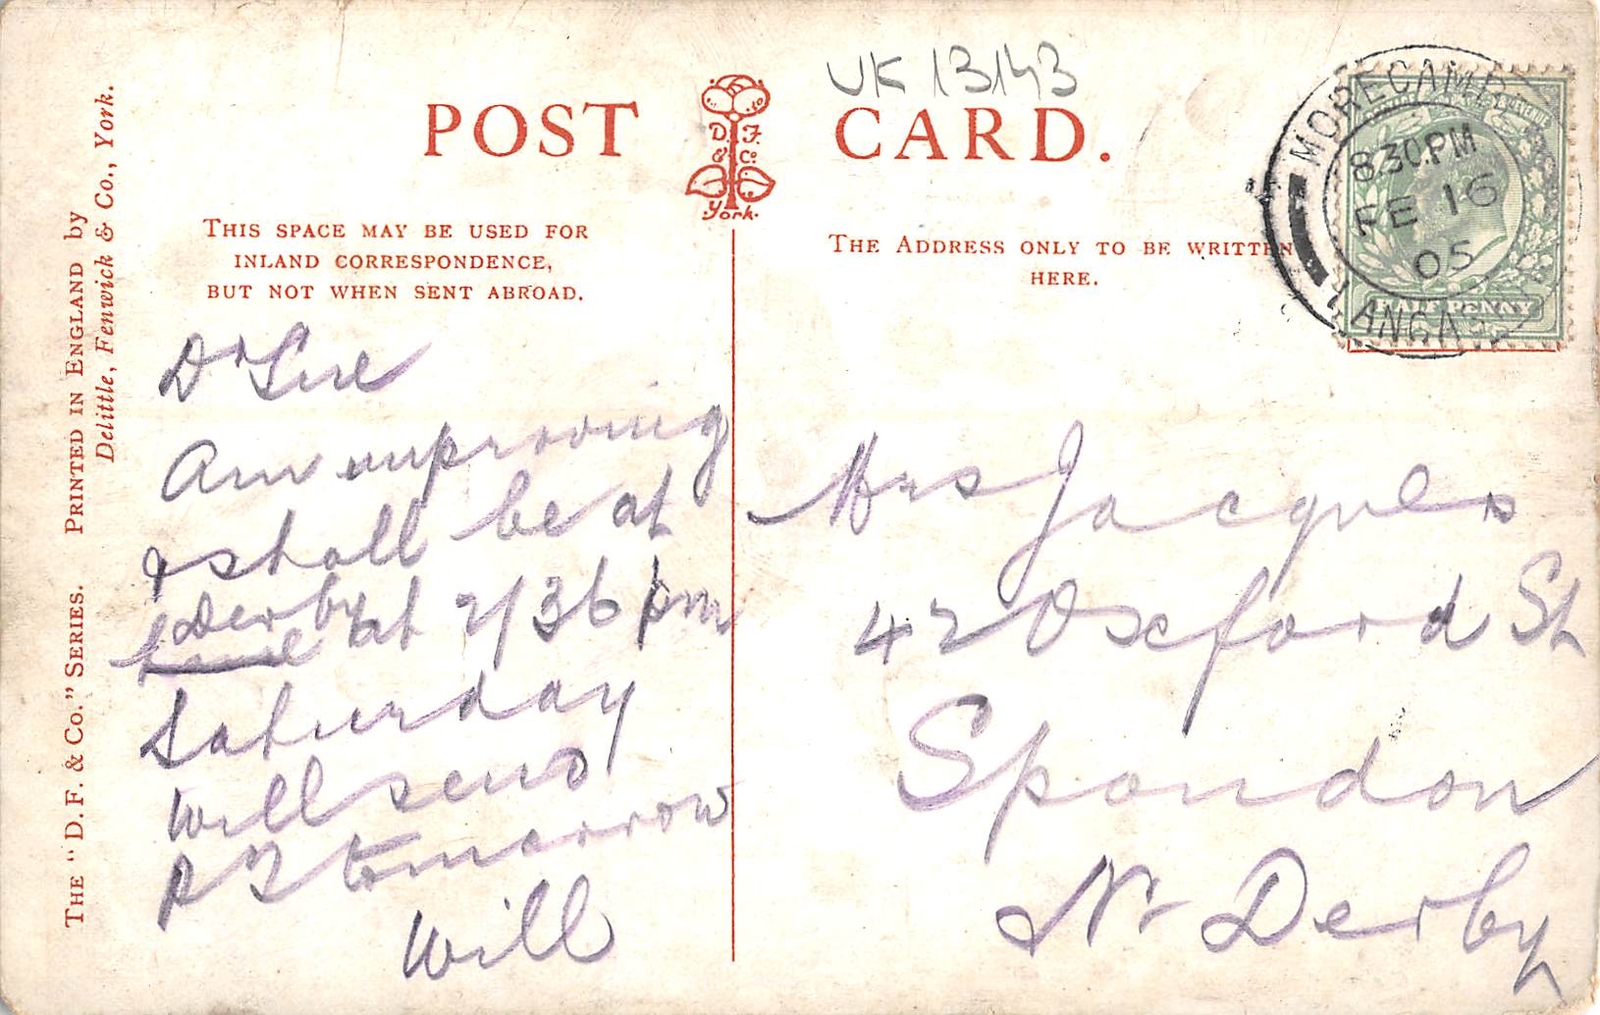 UK 13143
POST CARD.
D. F. & Co. York.
THIS SPACE MAY BE USED FOR
INLAND CORRESPONDENCE,
BUT NOT WHEN SENT ABROAD.
THE ADDRESS ONLY TO BE WRITTEN
HERE.
MORECAMBE
8.30.PM
FE 16
05
LANCAS
HALF PENNY
THE "D. F. & CO." SERIES. PRINTED IN ENGLAND by
Delittle, Fenwick & Co., York.
Dr Sue
Am improving
& shall be at
Derby
at 7/36 pm
Saturday
Will send
P C tomorrow
Will
Mrs Jacques
42 Oxford St
Spondon
Nr Derby